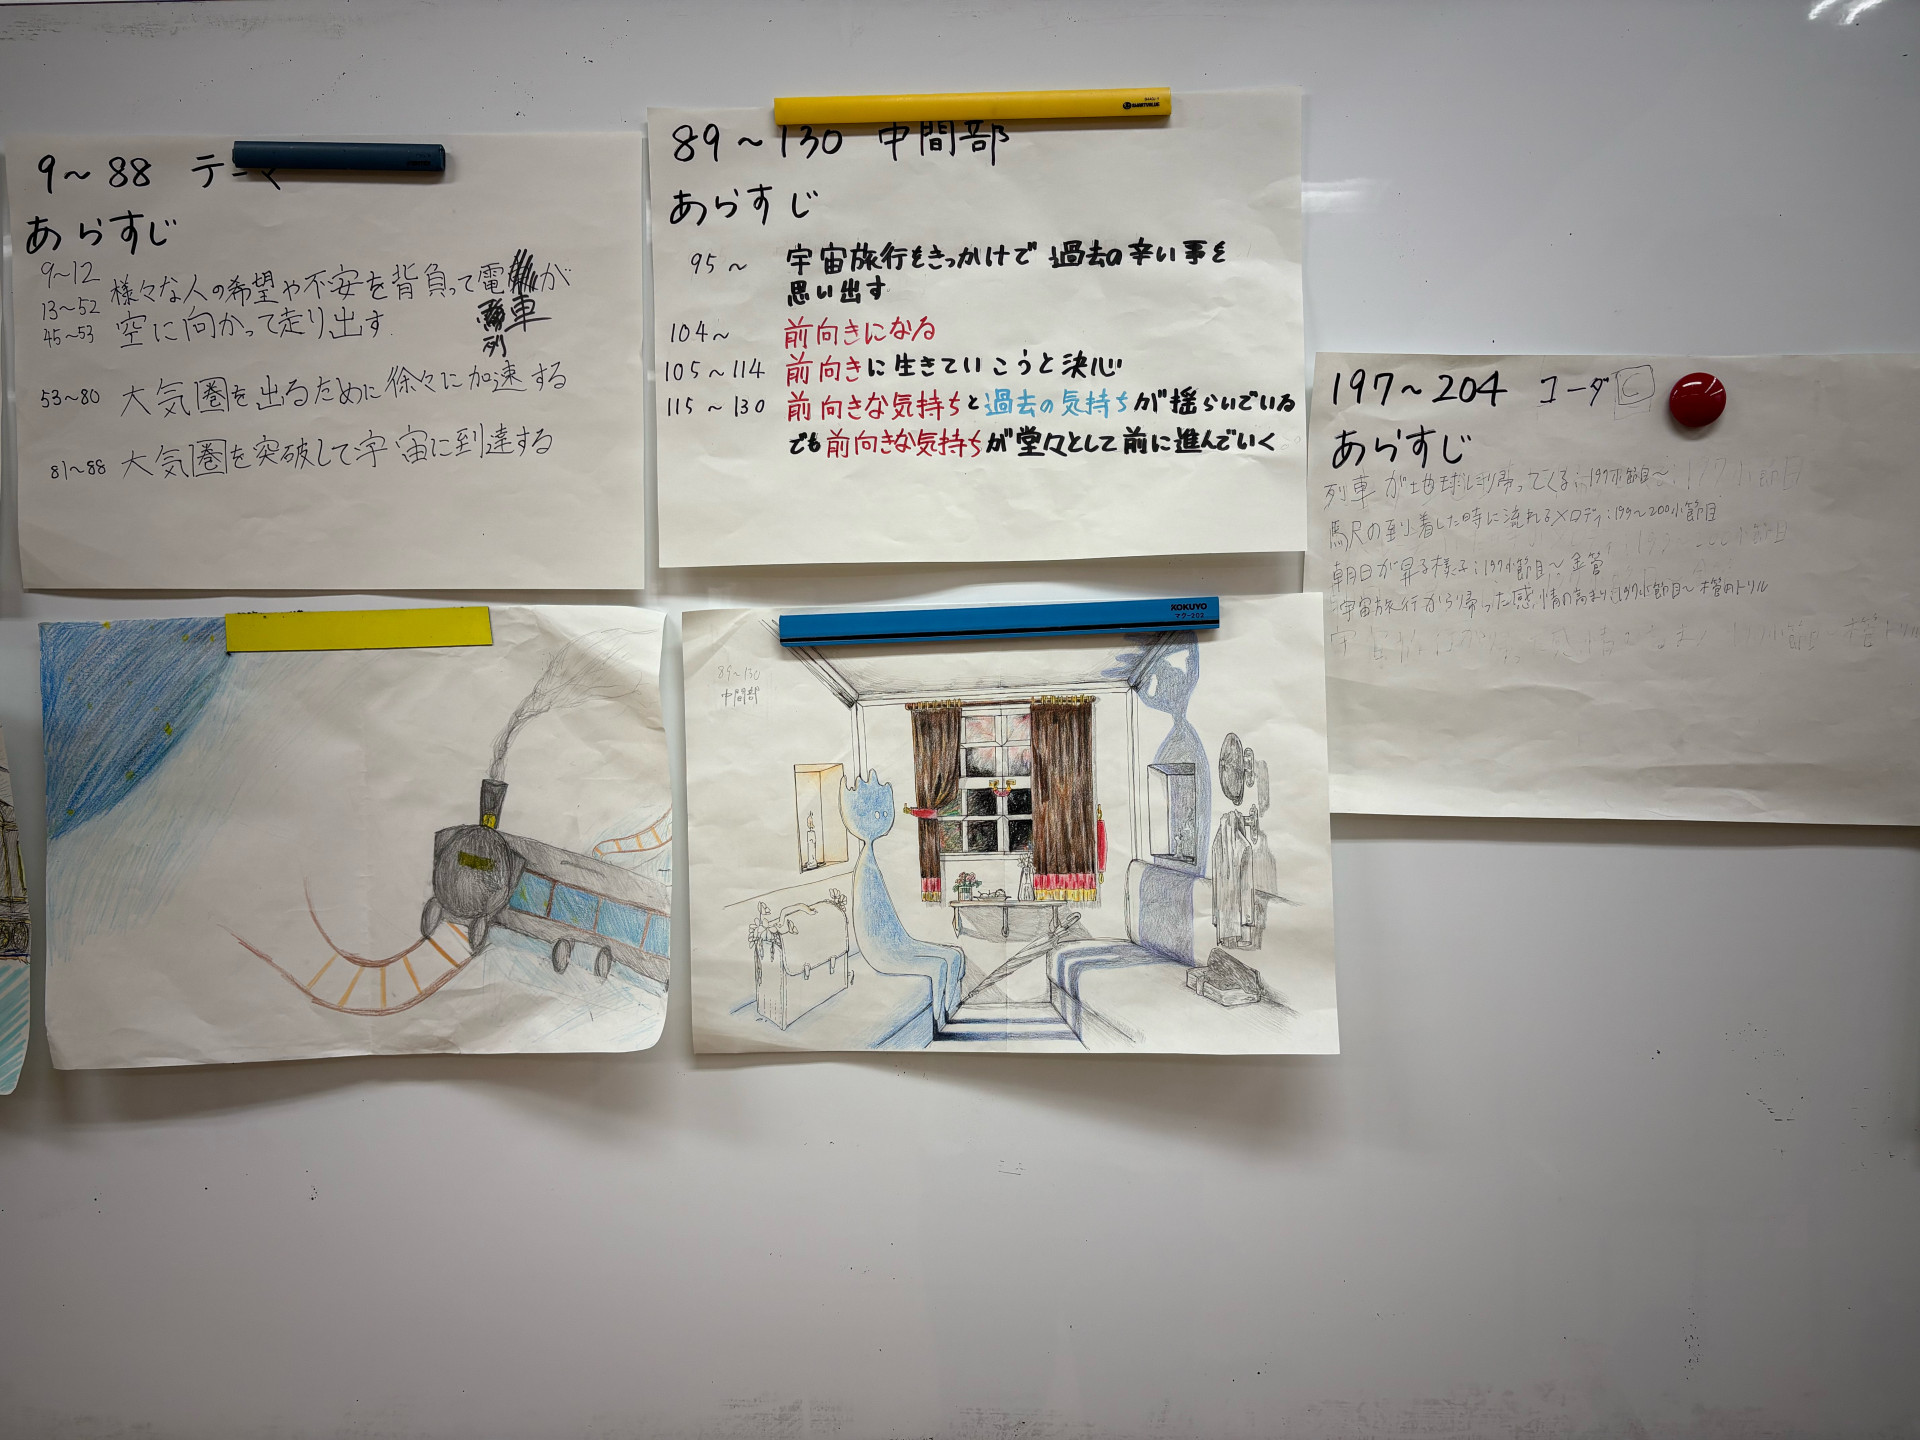 9～88 テーマ
あらすじ
9～12
13～52
45～53
様々な人の希望や不安を背負って電が
車
列
空に向かって走り出す
53～80 大気圏を出るために徐々に加速する
81～88 大気圏を突破して宇宙に到達する
89～130 中間部
あらすじ
95～ 宇宙旅行をきっかけで過去の辛い事を
思い出す
104～ 前向きになる
105～114 前向きに生きていこうと決心
115～130 前向きな気持ちと過去の気持ちが揺らいでいる
でも前向きな気持ちが堂々として前に進んでいく
197～204 コーダ C
あらすじ
列車が地球に帰ってくる:197小節目～
の到着した時に流れるメロディ:199～200小節目
朝日が昇る様子:197小節目～金管
宇宙旅行から帰った感情の高まり:197小節目～木管のトリル
89～130
中間部
KOKUYO
マグ-203